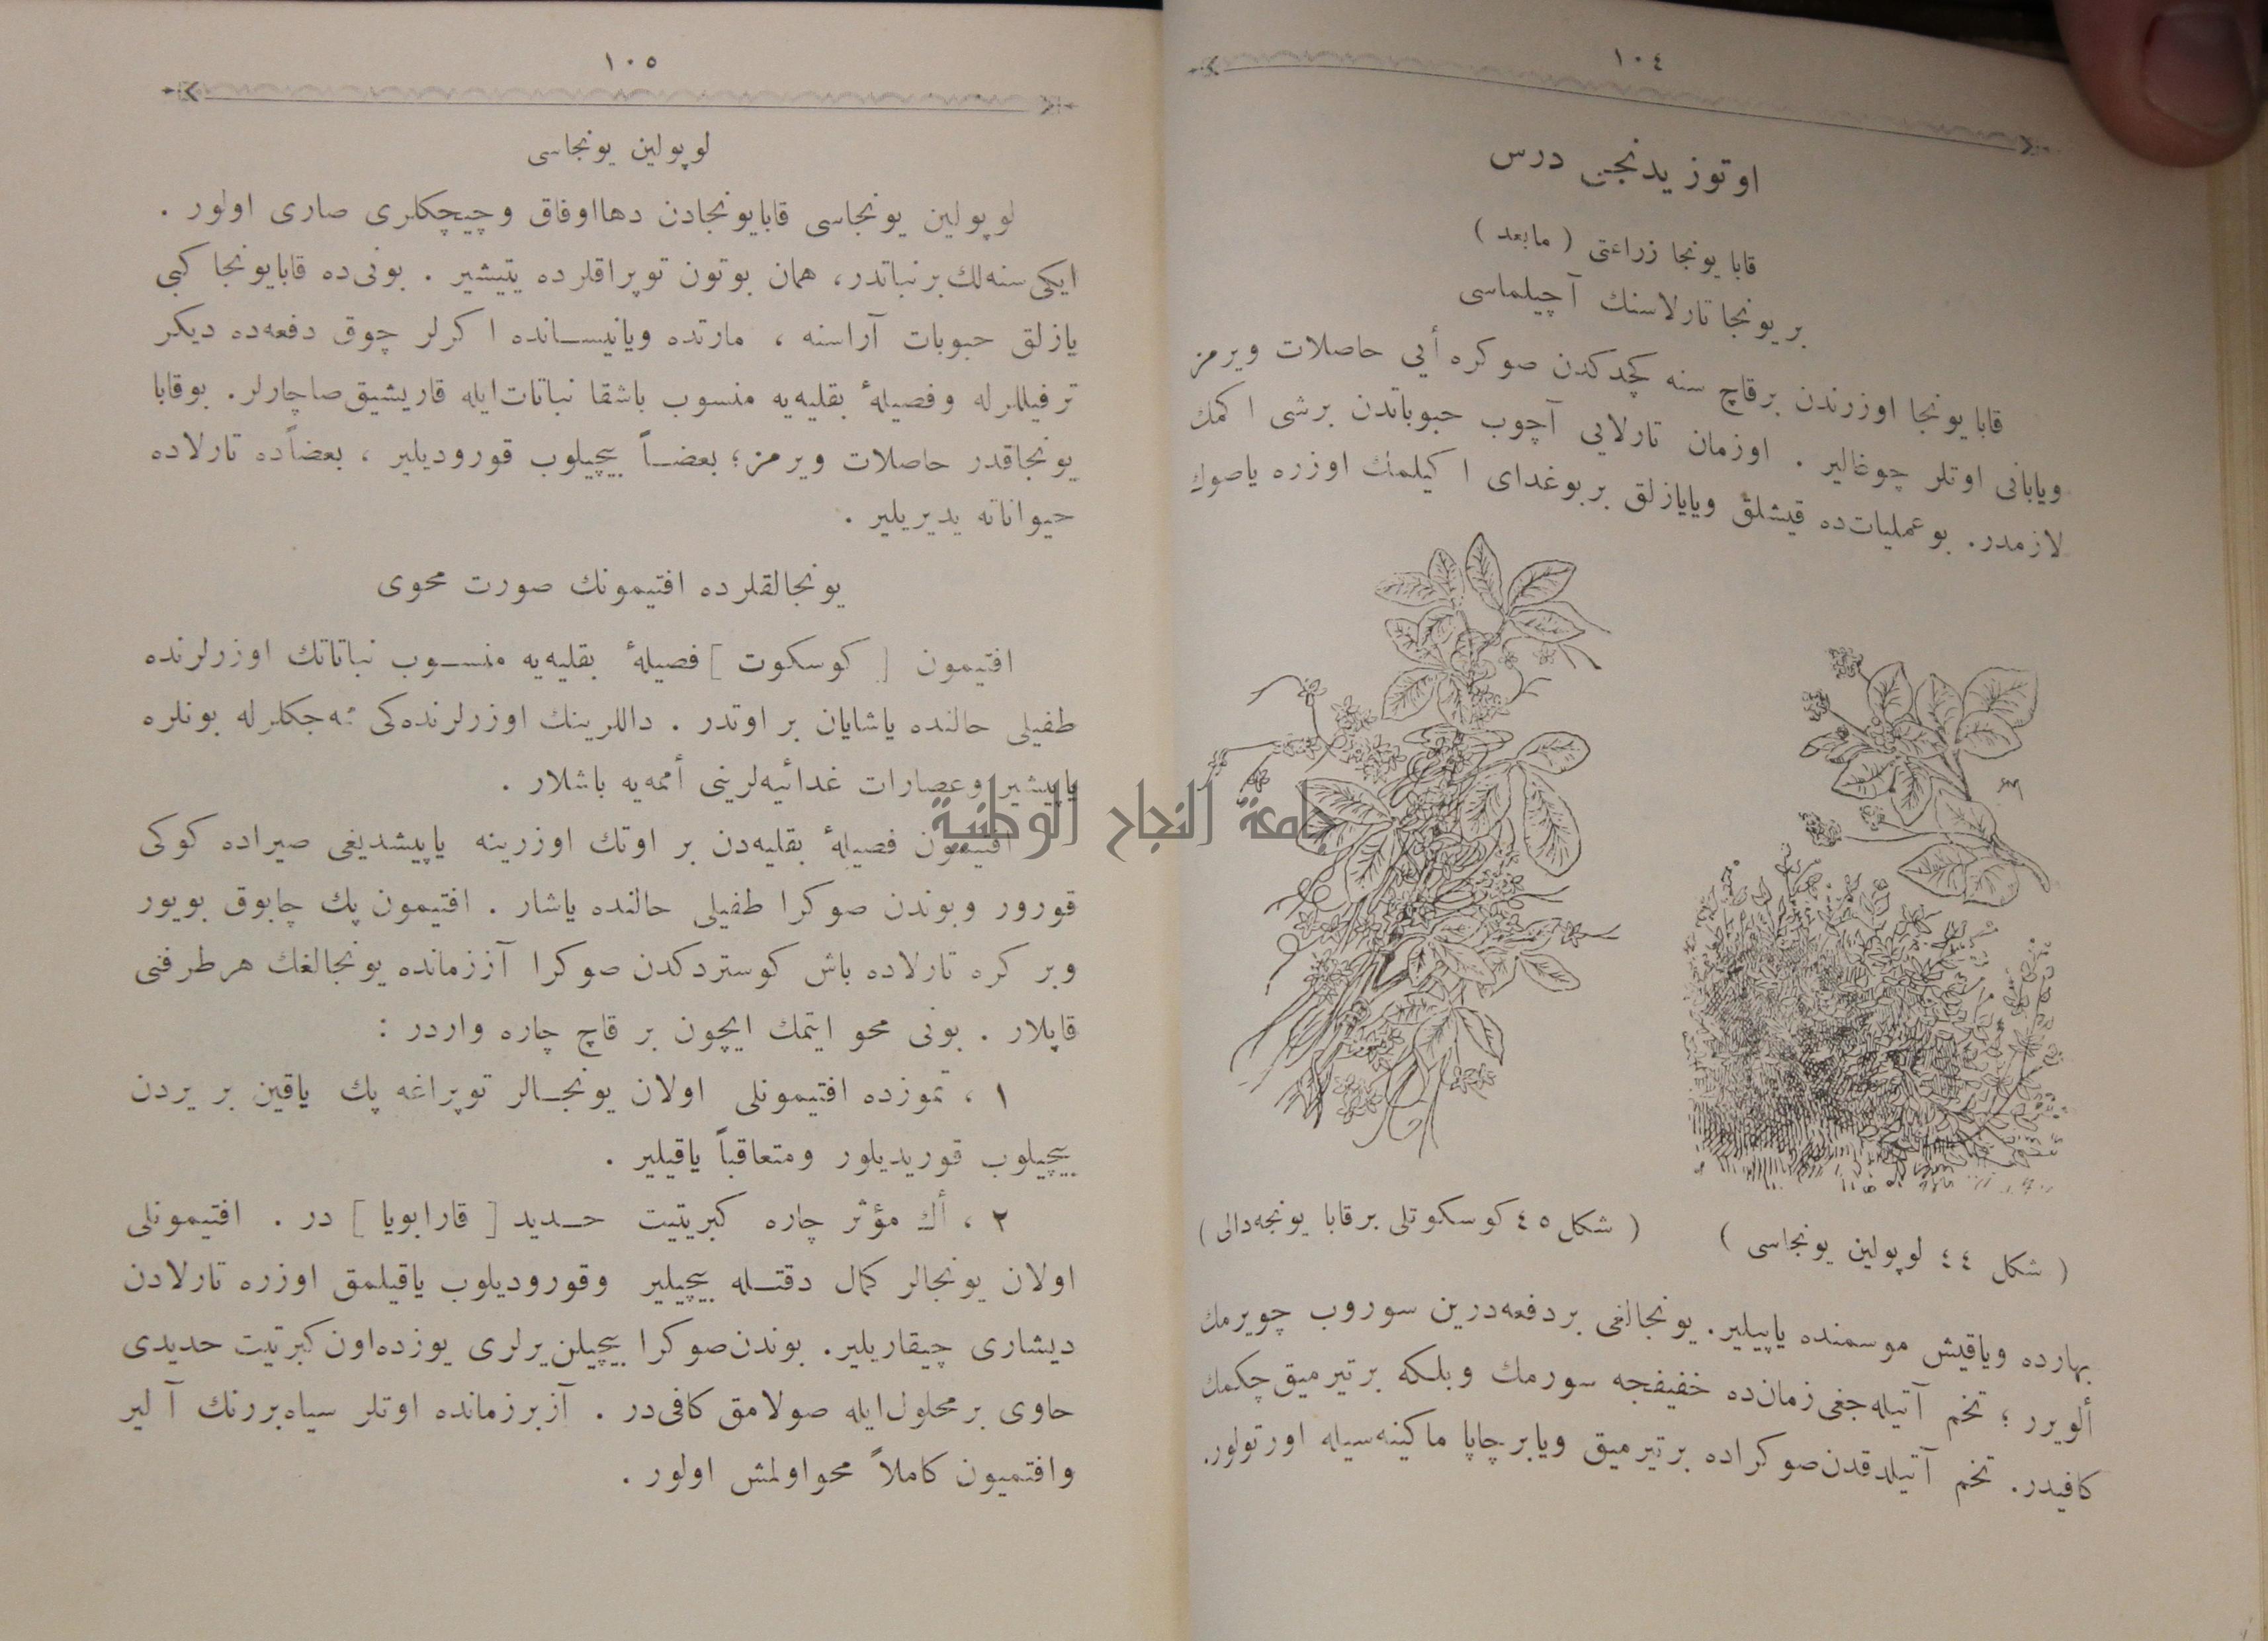 ١٠٤
اوتوز يدنجى درس
قابا يونجا زراعتى ( مابعد )
بر يونجا تارلاسنك آچيلماسى
قابا يونجا اوزرندن برقاچ سنه كچدكدن صوكره أيى حاصلات ويرمز
ويابانى اوتلر چوغالير . اوزمان تارلايى آچوب حبوباتدن برشى اكمك
لازمدر. بو عملياتده قيشلق ويايازلق بر بوغداى اكيلمك اوزره ياصوك
( شكل ٤٥ كوسكوتلى برقابا يونجه دالى )
( شكل ٤٤ لوپولين يونجاسى )
بهارده وياقيش موسمنده ياپيلير. يونجالغى بردفعه درين سوروب چويرمك
ألويرر ؛ تخم آتيله جغى زمان ده خفيفجه سورمك وبلكه برتيرميق چكمك
كافيدر. تخم آتيلدقدن صوكراده برتيرميق ويابر چاپا ماكينه سيله اورتولور.
١٠٥
لوپولين يونجاسى
لوپولين يونجاسى قابايونجادن دهااوفاق وچيچكلرى صارى اولور .
ايكى سنه لك برنباتدر، همان بوتون توپراقلرده يتيشير . بونى ده قابايونجا كبى
يازلق حبوبات آراسنه ، مارتده ويانيسانده اكرلر چوق دفعه ده ديكر
ترفيللرله وفصيلهٔ بقليه يه منسوب باشقا نباتات ايله قاريشيق صاچارلر. بوقابا
يونجاقدر حاصلات ويرمز؛ بعضاً بيچيلوب قوروديلير ، بعضاًده تارلاده
حيواناته يديريلير .
يونجالقلرده افتيمونك صورت محوى
افتيمون [ كوسكوت ] فصيلهٔ بقليه يه منسوب نباتاتك اوزرلرنده
طفيلى حالنده ياشايان بر اوتدر . داللرينك اوزرلرنده كى مه جكلرله بونلره
ياپيشير وعصارات غدائيه لرينى أممه يه باشلار .
جامعة النجاح الوطنية
افتيمون فصيلهٔ بقليه دن بر اوتك اوزرينه ياپيشديغى صيراده كوكى
قورور وبوندن صوكرا طفيلى حالنده ياشار . افتيمون پك چابوق بويور
وبر كره تارلاده باش كوستردكدن صوكرا آززمانده يونجالغك هر طرفنى
قاپلار . بونى محو ايتمك ايچون بر قاچ چاره واردر :
١ ، تموزده افتيمونلى اولان يونجالر توپراغه پك ياقين بر يردن
بيچيلوب قوريديلور ومتعاقباً ياقيلير .
٢ ، أڭ مؤثر چاره كبريتيت حديد [ قارابويا ] در . افتيمونلى
اولان يونجالر كمال دقتله بيچيلير وقوروديلوب ياقيلمق اوزره تارلادن
ديشارى چيقاريلير. بوندن صوكرا بيچيلن يرلرى يوزده اون كبرتيت حديدى
حاوى برمحلول ايله صولامق كافى در . آزبرزمانده اوتلر سياه بررنك آلير
وافتميون كاملاً محواولمش اولور .